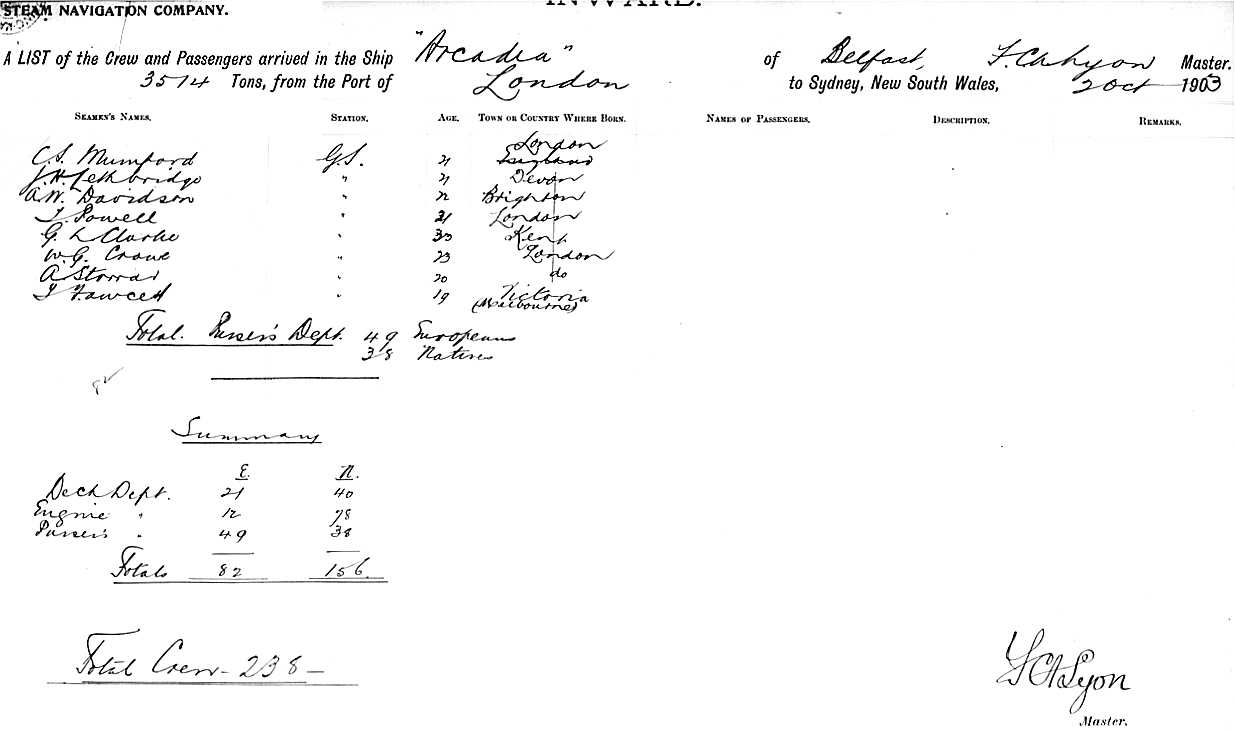 INWARD.
STEAM NAVIGATION COMPANY.
A LIST of the Crew and Passengers arrived in the Ship "Arcadia" of Belfast, F. C. A. Lyon Master.
3574 Tons, from the Port of London to Sydney, New South Wales, 2 Oct 1903
SEAMEN'S NAMES. STATION. AGE. TOWN OR COUNTRY WHERE BORN. NAMES OF PASSENGERS. DESCRIPTION. REMARKS.
London
C. S. Mumford G.S. 21 England
J. H. Lethbridge " 21 Devon
A. W. Davidson " 22 Brighton
T. Powell " 21 London
G. L Clarke " 33 Kent
W. G. Crane " 23 London
A Storrar " 20 do
T Fawcett " 19 Victoria
(Melbourne)
Total. Purser's Dept. 49 Europeans
38 Natives
Summary
E. N.
Deck Dept. 21 40
Engine " 12 78
Purser's " 49 38
Totals 82 156
Total Crew - 238 -
F C A Lyon
Master.